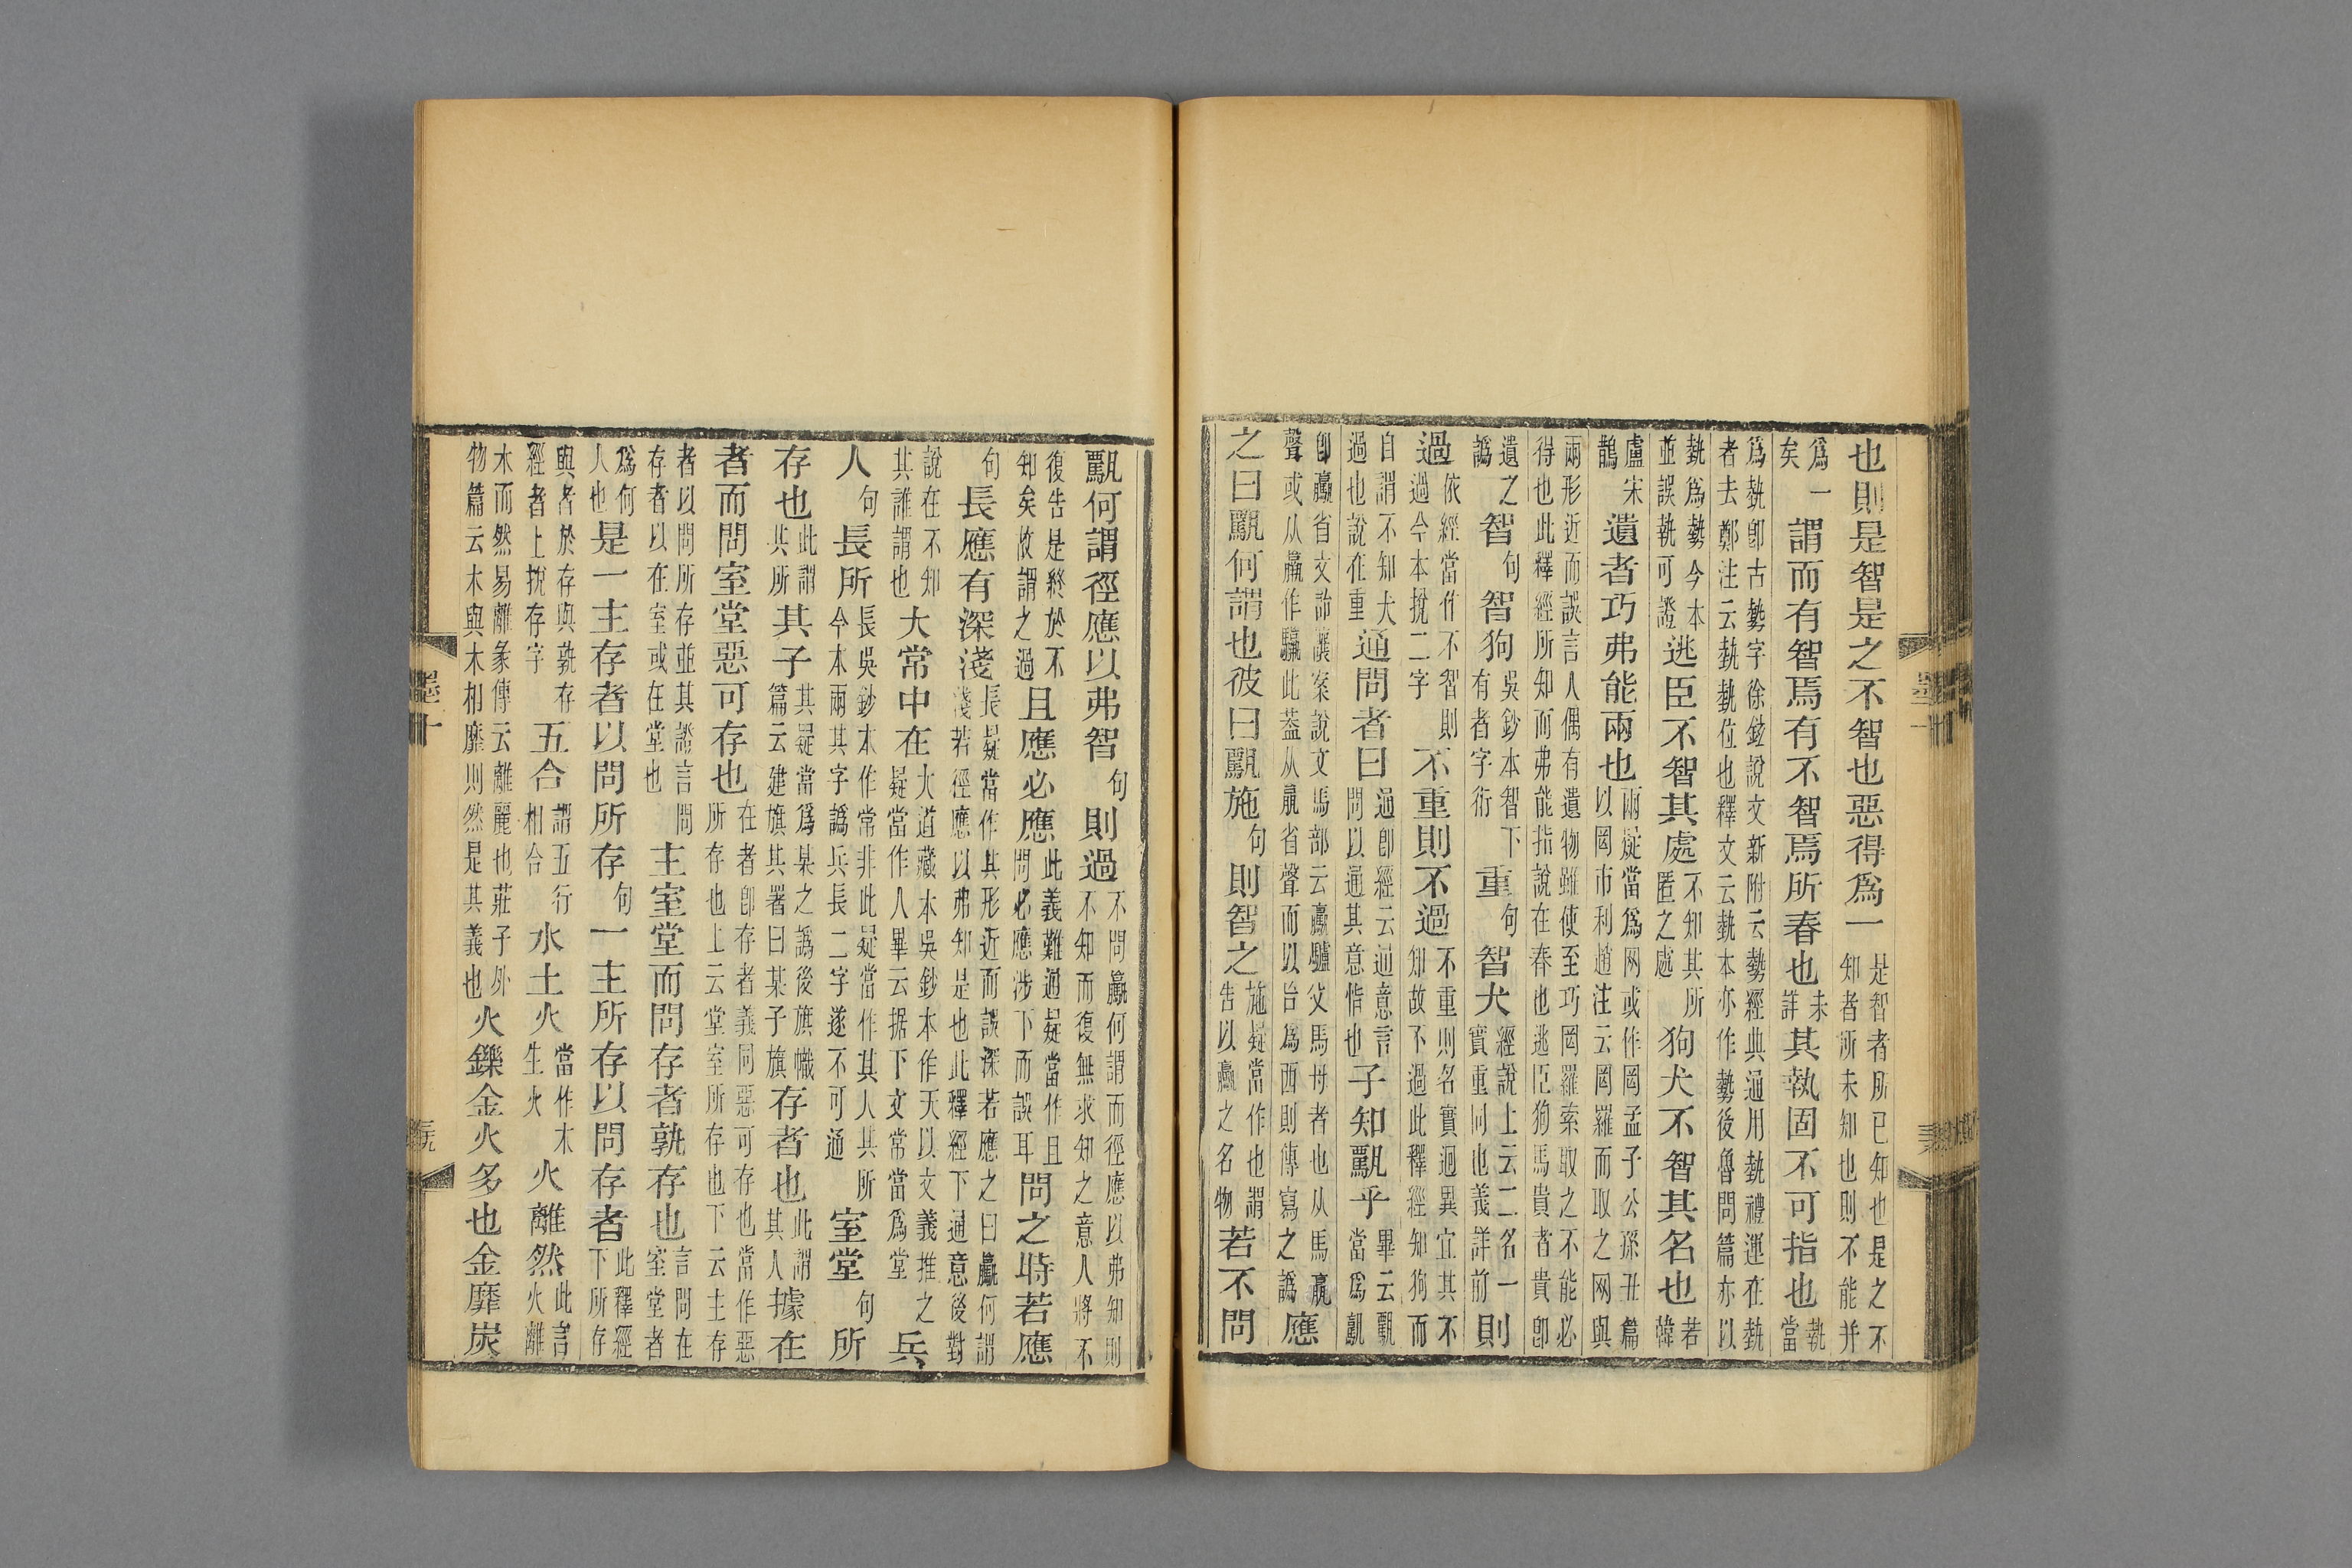 也則是智是之不智也惡得爲一是智者所已知也是之不知者所未知也則不能并
爲一矣謂而有智焉有不智焉所春也未詳其執固不可指也執當
爲埶卽古勢字徐鉉說文新附云勢經典通用埶禮運在埶者去鄭注云埶埶位也釋文云埶本亦作勢後魯問篇亦以
埶爲勢今本並誤執可證逃臣不智其處不知其所匿之處狗犬不智其名也若韓
盧宋鵲遺者巧弗能兩也兩疑當爲网或作罔孟子公孫丑篇以罔市利趙注云罔羅而取之网與
兩形近而誤言人偶有遺物雖使至巧罔羅索取之不能必得也此釋經所知而弗能指說在春也逃臣狗馬貴者貴卽
遺之譌智句智狗吳鈔本智下有者字衍重句智犬經說上云二名一實重同也義詳前則
過依經當作不智則過今本挩二字不重則不過不重則名實迥異宜其不知故不過此釋經知狗而
自謂不知犬過也說在重通問者曰通卽經云通意言問以通其意恉也子知乎畢云當爲
卽驘省文詒讓案說文馬部云驘驢父馬母者也从馬聲或从羸作此葢从羸省聲而以爲西則傳寫之譌應
之曰何謂也彼曰施句則智之施疑當作也謂告以驘之名物若不問
何謂徑應以弗智句則過不問驘何謂而徑應以弗知則不知而復無求知之意人將不
復告是終於不知矣故謂之過且應必應此義難通疑當作且問必應涉下而誤耳問之時若應
句長應有深淺長疑當作其形近而誤深若應之曰驘何謂淺若徑應以弗知是也此釋經下通意後對
說在不知其誰謂也大常中在大道藏本吳鈔本作天以文義推之疑當作人畢云据下文常當爲堂兵
人句長所長吳鈔本作常非此疑當作其人其所今本兩其字譌兵長二字遂不可通室堂句所
存也此謂其所其子其疑當爲某之譌後旗幟篇云建旗其署曰某子旗存者也此謂其人據在
者而問室堂惡可存也在者卽存者義同惡可存也當作惡所存也上云堂室所存也下云主存
者以問所存並其證言問存者以在室或在堂也主室堂而問存者孰存也言問在室堂者
爲何人也是一主存者以問所存句一主所存以問存者此釋經下所存
與者於存與孰存經者上挩存字五合謂五行相合水土火當作木生火火離然此言火離
木而然易離彖傳云離麗也莊子外物篇云木與木相靡則然是其義也火鑠金火多也金靡炭
墨十